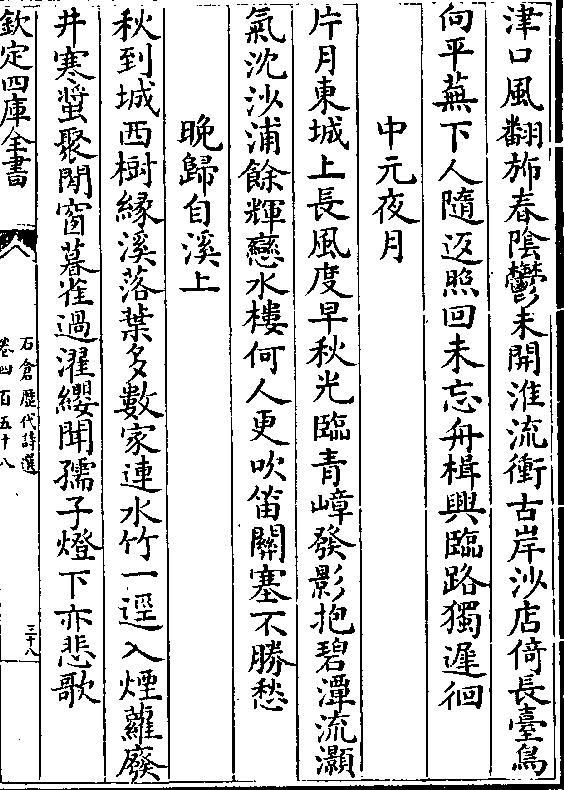 津口風翻斾春陰鬱未開淮流衝古岸沙店倚長臺鳥
向平蕪下人隨返照回未忘舟楫興臨路獨遲徊
中元夜月
片月東城上長風度早秋光臨青嶂發影抱碧潭流灝
氣沈沙浦餘輝戀水樓何人更吹笛關塞不勝愁
晚歸自溪上
秋到城西樹緣溪落葉多數家連水竹一逕入煙蘿廢
井寒螿聚閒窗暮雀過濯纓聞孺子燈下亦悲歌
欽定四庫全書
石倉歷代詩選
卷四百五十八
三十八